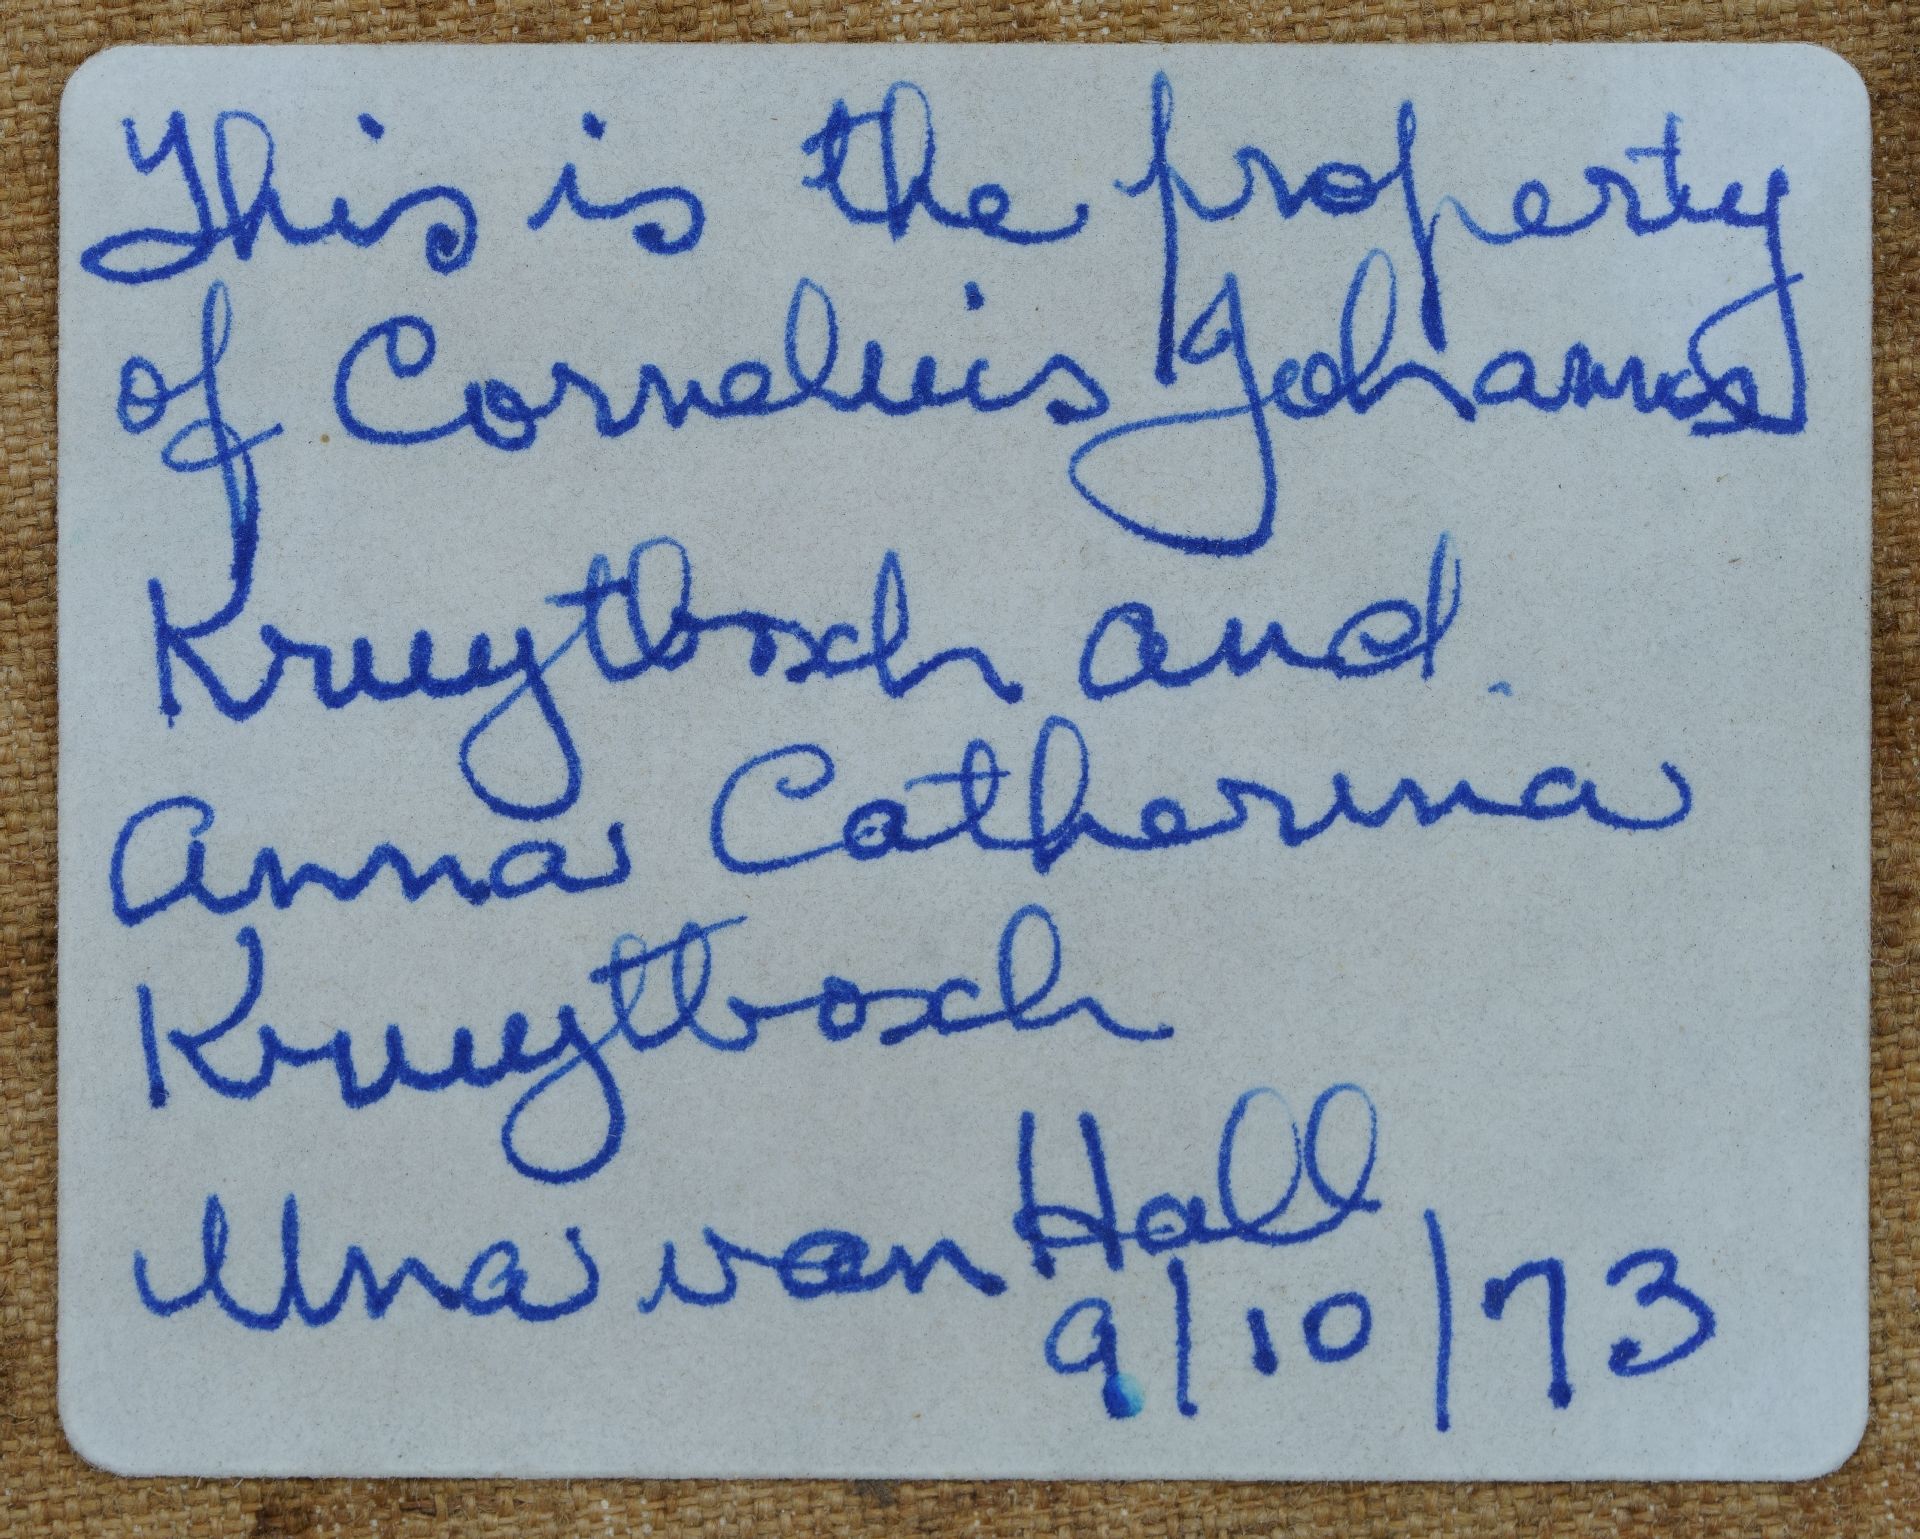 This is the property
of Cornelius Johannes
Kruytbosch and
Anna Catherina
Kruytbosch
Una van Hall
9/10/73